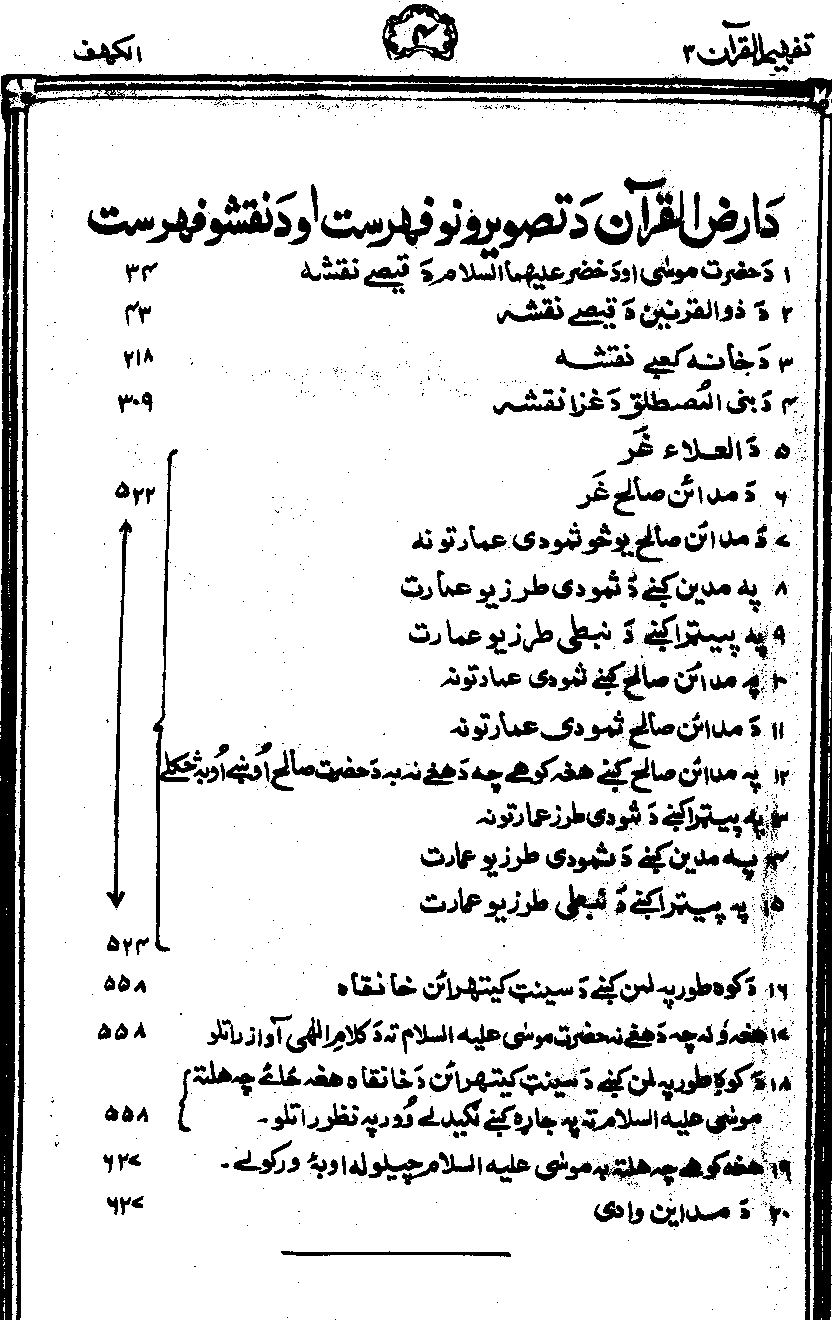 تفهيم القرآن ۳
۴
الکهف
دَ ارض القرآن دَ تصویرونو فهرست او دَ نقشو فهرست
۱ دَ حضرت موسٰی او دَ خضر علیهما السلام دَ قیصے نقشه ۳۴
۲ دَ ذوالقرنین دَ قیصے نقشه ۴۳
۳ دَ خانه کعبے نقشه ۲۱۸
۴ دَ بنی المُصطلق دَ غزا نقشه ۳۰۹
۵ دَ العلاء غَر
۶ دَ مدائن صالح غَر ۵۲۲
۷ دَ مدائن صالح یو څو ثمودی عمارتونه
۸ په مدین کښے دَ ثمودی طرز یو عمارت
۹ په پیټرا کښے دَ نبطی طرز یو عمارت
۱۰ په مدائن صالح کښے ثمودی عمارتونه
۱۱ دَ مدائن صالح ثمودی عمارتونه
۱۲ په مدائن صالح کښے هغه کوهے چه دَ هغے نه به دَ حضرت صالح اُوښے اُوبه څکلے
۱۳ په پیټرا کښے دَ ثمودی طرز عمارتونه
۱۴ په مدین کښے دَ ثمودی طرز یو عمارت
۱۵ په پیټرا کښے دَ نبطی طرز یو عمارت
۵۲۴
۱۶ دَ کوه طور په لمن کښے دَ سینټ کیتهرائن خانقاه ۵۵۸
۱۷ هغه وُنه چه دَ هغے نه حضرت موسٰی علیه السلام ته دَ کلامِ الٰهی آواز راتلو ۵۵۸
۱۸ دَ کوه طور په لمن کښے دَ سینټ کیتهرائن دَ خانقاه هغه ځائے چه هلته
موسٰی علیه السلام ته په جاړه کښے لګیدلے وُور په نظر راتلو۔ ۵۵۸
۱۹ هغه کوهے چه هلته به موسٰی علیه السلام چیلو له اوبهٔ ورکولے۔ ۶۲۷
۲۰ دَ مداین وادی ۶۲۷